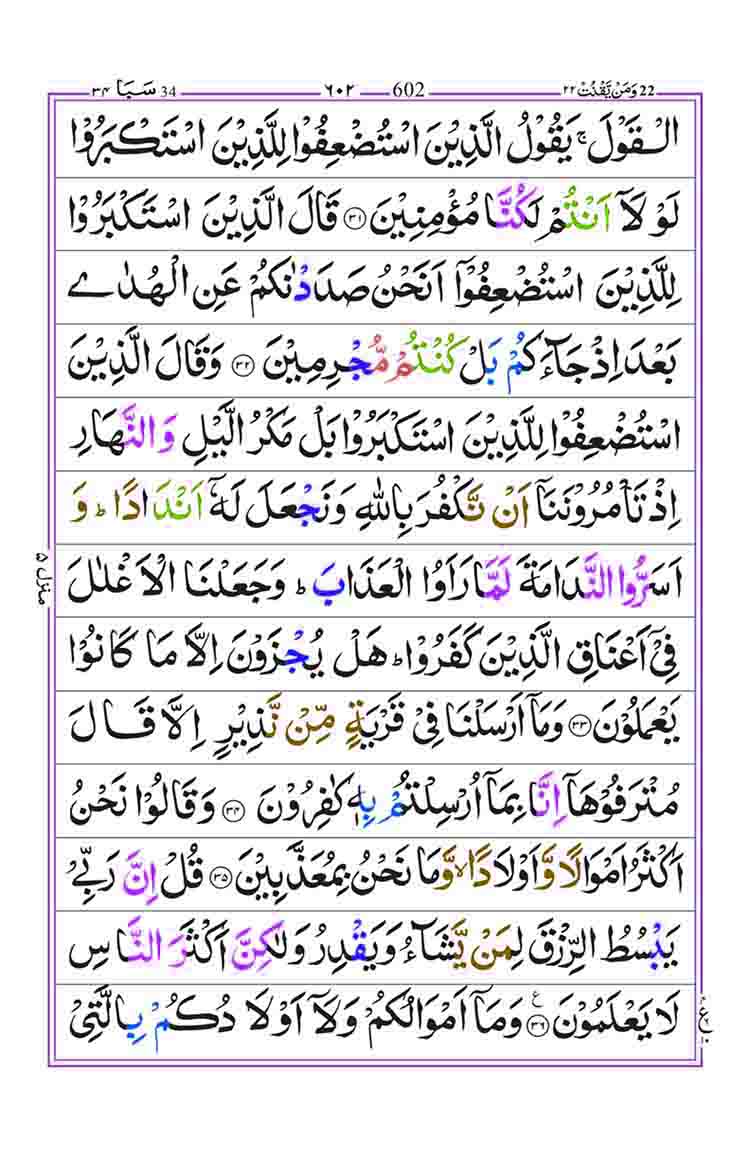 22 وَمَنْ يَّقْنُتْ ٢٢ 602 ٦٠٢ 34 سَبَا ٣٤
الْقَوْلَ ۚ يَقُوْلُ الَّذِيْنَ اسْتُضْعِفُوْا لِلَّذِيْنَ اسْتَكْبَرُوْا
لَوْ لَاۤ اَنْتُمْ لَكُنَّا مُؤْمِنِيْنَ ﴿٣١﴾ قَالَ الَّذِيْنَ اسْتَكْبَرُوْا
لِلَّذِيْنَ اسْتُضْعِفُوْۤا اَنَحْنُ صَدَدْنٰكُمْ عَنِ الْهُدٰى
بَعْدَ اِذْ جَآءَكُمْ بَلْ كُنْتُمْ مُّجْرِمِيْنَ ﴿٣٢﴾ وَقَالَ الَّذِيْنَ
اسْتُضْعِفُوْا لِلَّذِيْنَ اسْتَكْبَرُوْا بَلْ مَكْرُ الَّيْلِ وَ النَّهَارِ
اِذْ تَاْمُرُوْنَنَاۤ اَنْ نَّكْفُرَ بِاللّٰهِ وَنَجْعَلَ لَهٗۤ اَنْدَادًا ؕ وَ
اَسَرُّوا النَّدَامَةَ لَمَّا رَاَوُا الْعَذَابَ ؕ وَجَعَلْنَا الْاَغْلٰلَ
فِيْۤ اَعْنَاقِ الَّذِيْنَ كَفَرُوْا ؕ هَلْ يُجْزَوْنَ اِلَّا مَا كَانُوْا
يَعْمَلُوْنَ ﴿٣٣﴾ وَمَاۤ اَرْسَلْنَا فِيْ قَرْيَةٍ مِّنْ نَّذِيْرٍ اِلَّا قَالَ
مُتْرَفُوْهَاۤ اِنَّا بِمَاۤ اُرْسِلْتُمْ بِهٖ كٰفِرُوْنَ ﴿٣٤﴾ وَقَالُوْا نَحْنُ
اَكْثَرُ اَمْوَالًا وَّ اَوْلَادًا ۙ وَّمَا نَحْنُ بِمُعَذَّبِيْنَ ﴿٣٥﴾ قُلْ اِنَّ رَبِّيْ
يَبْسُطُ الرِّزْقَ لِمَنْ يَّشَآءُ وَيَقْدِرُ وَلٰكِنَّ اَكْثَرَ النَّاسِ
لَا يَعْلَمُوْنَ ﴿٣٦﴾ ع وَمَاۤ اَمْوَالُكُمْ وَلَاۤ اَوْلَادُكُمْ بِالَّتِيْ
منزل ٥